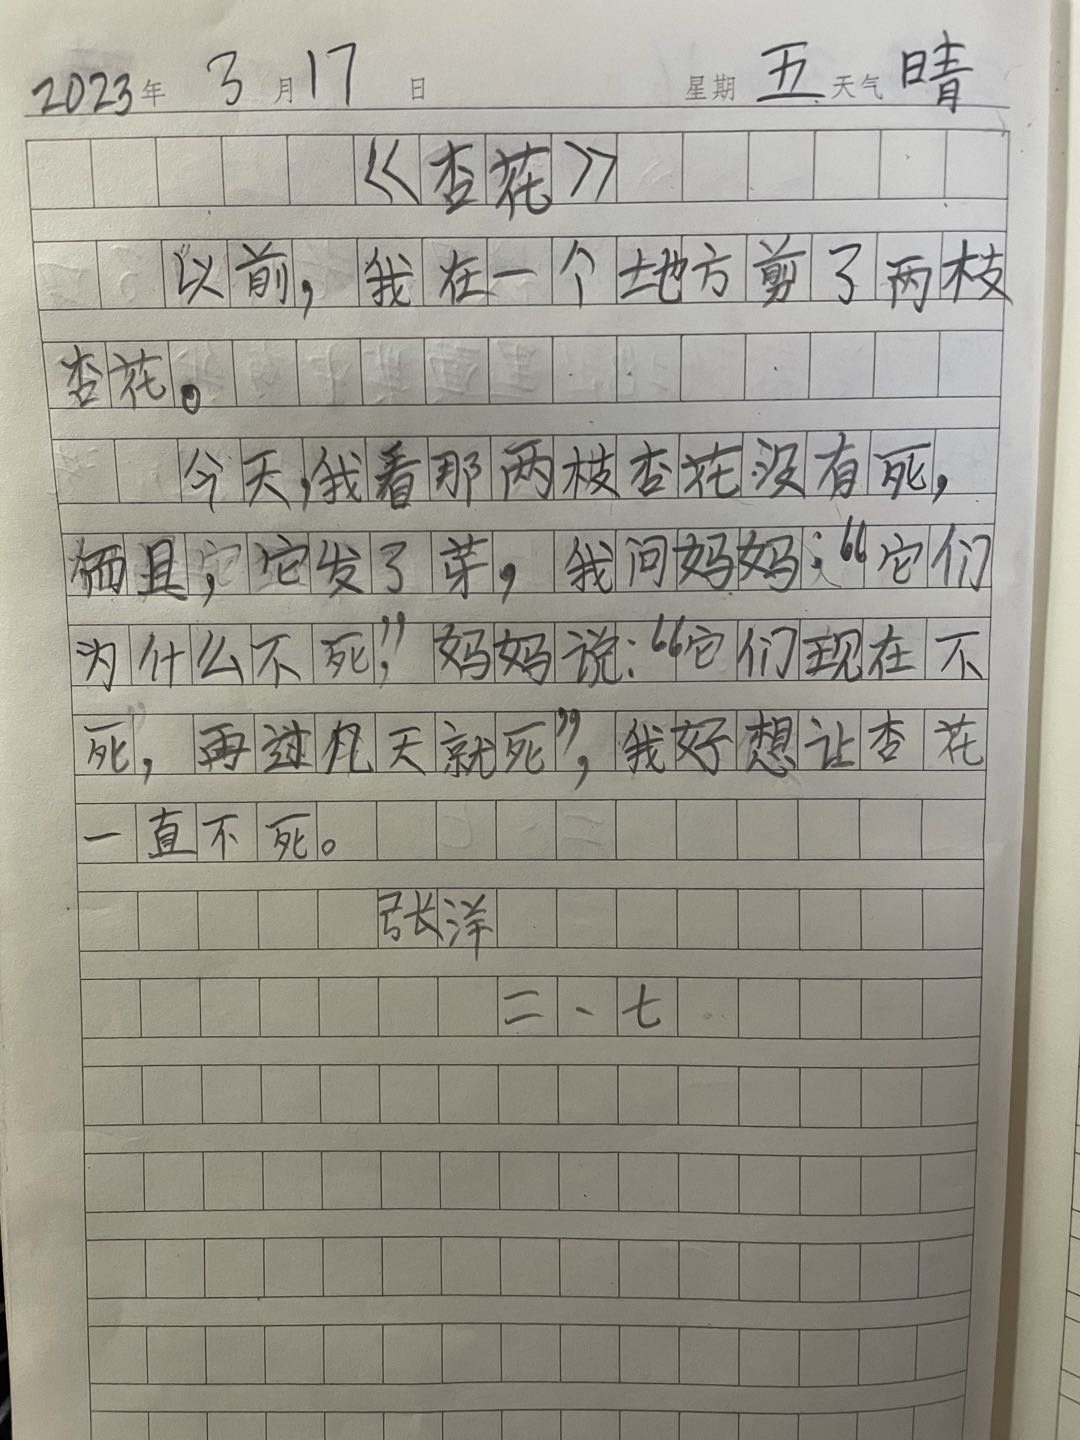 2023年 3月17日 星期五 天气 晴
《杏花》
以前,我在一个地方剪了两枝
杏花。
今天,我看那两枝杏花没有死,
而且,它发了芽,我问妈妈:“它们
为什么不死,”妈妈说:“它们现在不
死,再过几天就死”,我好想让杏花
一直不死。
张洋
二、七